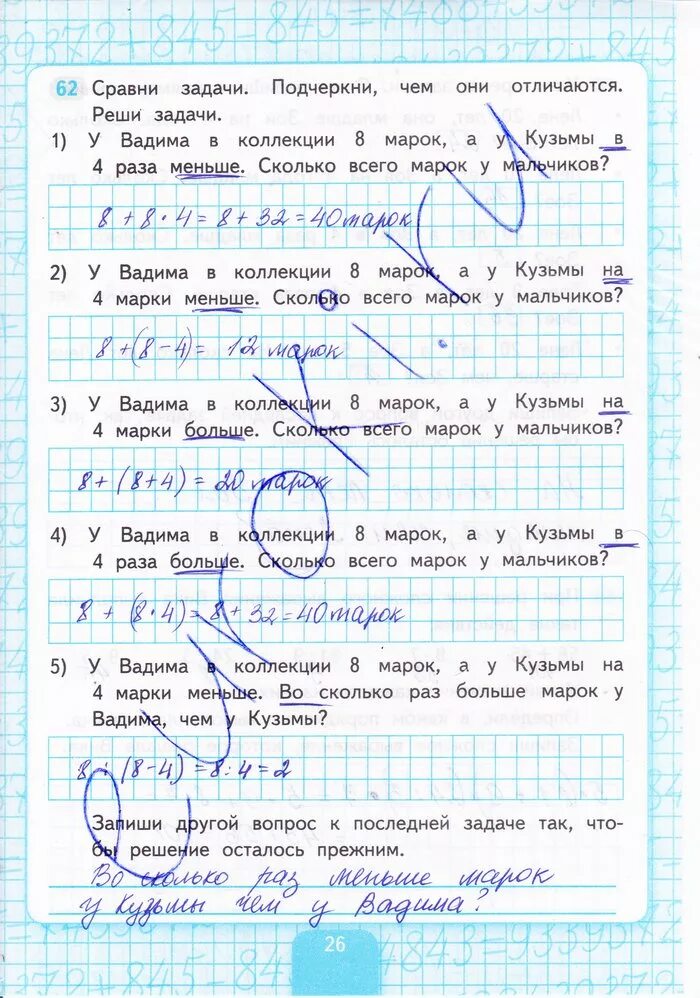 62 Сравни задачи. Подчеркни, чем они отличаются.
Реши задачи.
1) У Вадима в коллекции 8 марок, а у Кузьмы в
4 раза меньше. Сколько всего марок у мальчиков?
8 + 8 · 4 = 8 + 32 = 40 марок
2) У Вадима в коллекции 8 марок, а у Кузьмы на
4 марки меньше. Сколько всего марок у мальчиков?
8 + (8 - 4) = 12 марок
3) У Вадима в коллекции 8 марок, а у Кузьмы на
4 марки больше. Сколько всего марок у мальчиков?
8 + (8 + 4) = 20 марок
4) У Вадима в коллекции 8 марок, а у Кузьмы в
4 раза больше. Сколько всего марок у мальчиков?
8 + (8 · 4) = 8 + 32 = 40 марок
5) У Вадима в коллекции 8 марок, а у Кузьмы на
4 марки меньше. Во сколько раз больше марок у
Вадима, чем у Кузьмы?
8 : (8 - 4) = 8 : 4 = 2
Запиши другой вопрос к последней задаче так, что-
бы решение осталось прежним.
Во сколько раз меньше марок
у Кузьмы чем у Вадима?
26